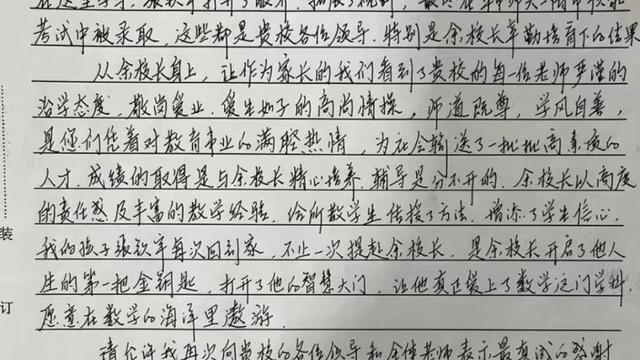 考试中被录取，这些都是贵校各位领导，特别是余校长辛勤培育下的结果
从余校长身上，让作为家长的我们看到了贵校的每一位老师严谨的
治学态度，敬岗爱业，爱生如子的高尚情操，师道既尊，学风自善，
是您们凭着对教育事业的满腔热情，为社会输送了一批批高素质的
人才。成绩的取得是与余校长精心培养、辅导是分不开的。余校长以高度
的责任感及丰富的教学经验，给所教学生传授了方法，增添了学生信心，
我的孩子张钦辛每次回到家，不止一次提起余校长，是余校长开启了他人
生的第一把金钥匙，打开了他的智慧大门，让他真正爱上了数学这门学科，
愿意在数学的海洋里遨游。
请允许我再次向贵校的各位领导和余佳老师表示最真诚的感谢
装
订